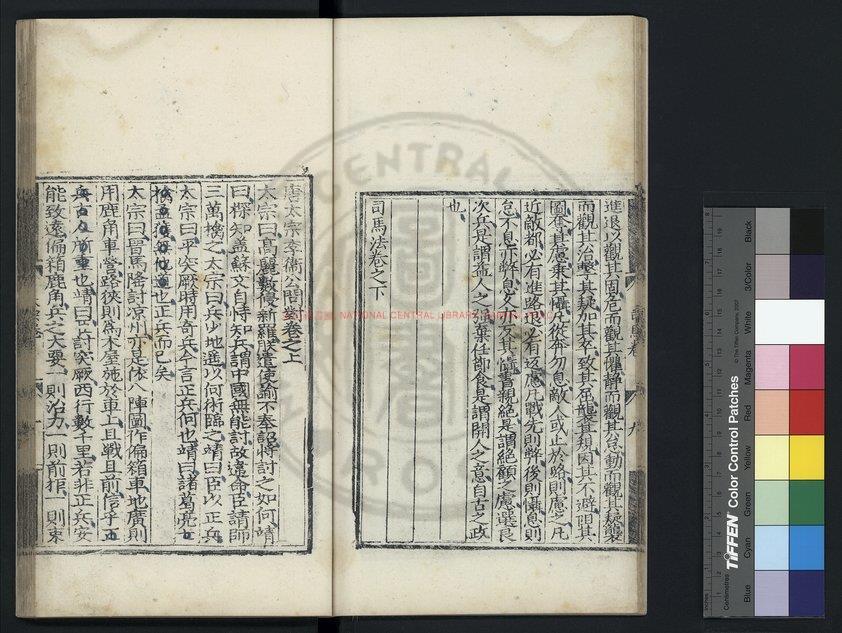 進退以觀其固危而觀其懼靜而觀其怠動而觀其疑襲
而觀其治擊其疑加其卒致其屈襲其規因其不避阻其
圖奪其慮乘其懾凡從奔勿息敵人或止於路則慮之凡
近敵都必有進路退必有返慮凡戰先則弊後則懾息則
怠不息亦弊息久亦反其懾書親絶是謂絶顧之慮選良
次兵是謂益人之強棄任節食是謂開人之意自古之政
也
司馬法卷之下
唐太宗李衛公問對卷之上
太宗曰高麗數侵新羅朕遣使諭不奉詔將討之如何靖
曰探知盖蘇文自恃知兵謂中國無能討故違命臣請師
三萬擒之太宗曰兵少地遥以何術臨之靖曰臣以正兵
太宗曰平突厥時用奇兵今言正兵何也靖曰諸葛亮七
擒孟獲無他道也正兵而已矣
太宗曰晉馬隆討凉州亦是依八陣圖作偏箱車地廣則
用鹿角車營路狹則爲木屋施於車上且戰且前信乎正
兵古人所重也靖曰臣討突厥西行數千里若非正兵安
能致遠偏箱鹿角兵之大要一則治力一則前拒一則束
NATIONAL CENTRAL LIBRARY
TIFFEN Color Control Patches
© The Tiffen Company, 2007
Centimetres
Inches
Blue
Cyan
Green
Yellow
Red
Magenta
White
3/Color
Black